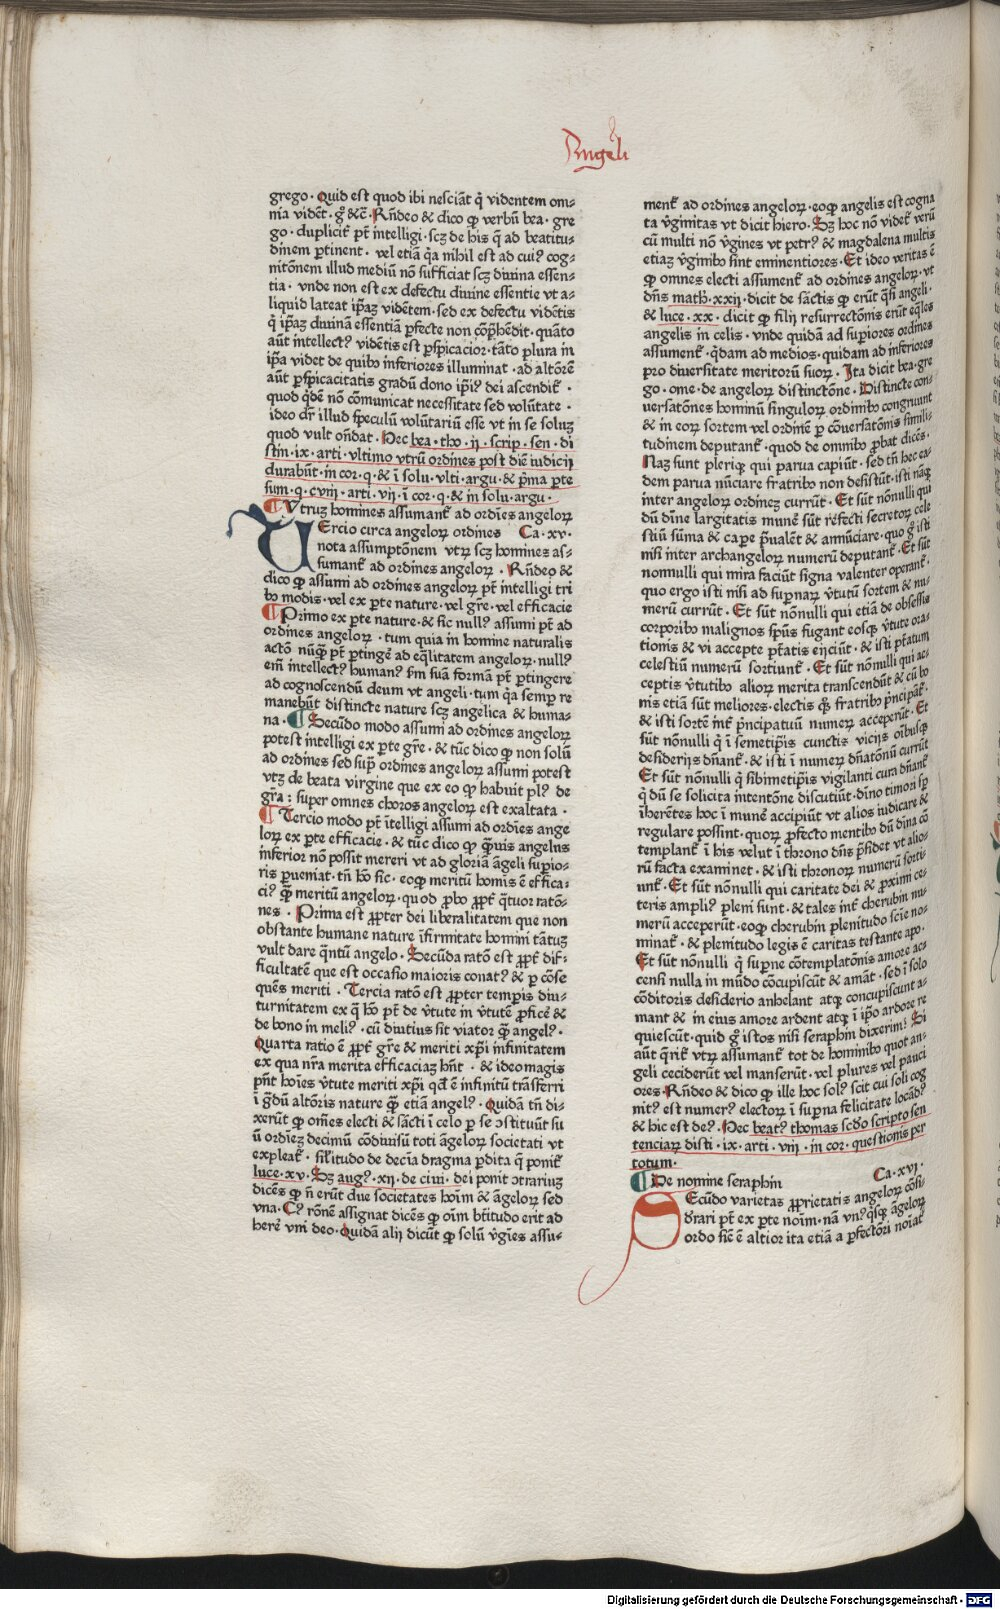 Angeli
grego · Quid est quod ibi nesciāt q̇ videntem om⸗
nia vidēt · gͦ &cͣ · Rn̄deo & dico ꝙ verbū bea · gre
go · duplicit᷑ pt̄ intelligi · scꝫ de his q̄ ad beatitu⸗
dinem ꝑtinent · vel etiā qͣ nihil est ad cuiꝰ cog⸗
nitōnem illud mediū nō sufficiat scꝫ diuina essen⸗
tia · vnde non est ex defectu diuine essentie vt a⸗
liquid lateat ip̄aꝫ vidētem · sed ex defectu vidētis
q̇ ip̄aꝫ diuinā essentiā ꝑfecte non cōp̄hēdit · quāto
aūt intellectꝰ vidētis est ꝑspicacior · tāto plura in
ip̄a videt de quibꝰ inferiores illuminat · ad altōrē
aūt ꝑspicacitatis gradū dono ip̄iꝰ dei ascendit ·
quod qͥdē nō cōmunicat necessitate sed volūtate ·
ideo dr̄ illud speculū volūtariū esse vt in se soluꝫ
quod vult on̄dat · Hec bea · tho · ij · scrip · sen · di
stin · ix · arti · vltimo vtrū ordines post diē iudicij
durabūt · in cor · q · & ī solu · vlti · argu · & p̄ma ꝑte
sum · q · cviij · arti · vij · ī cor · q · & in solu · argu ·
¶ Vtruꝫ homines assumant᷑ ad ordīes angeloꝝ
Ercio circa angeloꝝ ordines Ca · xv ·
nota assumptōnem vtꝝ scꝫ homines as⸗
sumant᷑ ad ordines angeloꝝ · Rn̄deo &
dico ꝙ assumi ad ordines angeloꝝ pt̄ intelligi tri
bꝰ modis · vel ex ꝑte nature · vel gr̄e · vel efficacie
¶ Primo ex ꝑte nature · & sic nullꝰ assumi pt̄ ad
ordines angeloꝝ · tum quia in homine naturalis
actō nūqͣ pt̄ ꝑtingē ad eq̄litatem angeloꝝ · nullꝰ
em̄ intellectꝰ humanꝰ ẜm suā formā pt̄ ꝑtingere
ad cognoscendū deum vt angeli · tum qͣ semꝑ re
manebūt distincte nature scꝫ angelica & huma⸗
na · ¶ Secūdo modo assumi ad ordines angeloꝝ
potest intelligi ex ꝑte gr̄e · & tūc dico ꝙ non solū
ad ordines sed sup̄ ordines angeloꝝ assumi potest
vtꝫ de beata virgine que ex eo ꝙ habuit plꝰ de
gr̄a : super omnes choros angeloꝝ est exaltata ·
¶ Tercio modo pt̄ ītelligi assumi ad ordīes ange
loꝝ ex ꝑte efficacie · & tūc dico ꝙ q̄uis angelus
inferior nō possit mereri vt ad gloriā āgeli supio⸗
ris ꝑueniat · tn̄ hͦ sic · eoꝙ meritū homis ē effica⸗
ciꝰ qͣ meritū angeloꝝ · quod ꝓbo ꝓpt᷑ qͣtuor ratō⸗
nes · Prima est ꝓpter dei liberalitatem que non
obstante humane nature īfirmitate homini tātuꝫ
vult dare qͣntū angelo · Secūda ratō est ꝓpt᷑ dif⸗
ficultatē que est occasio maioris conatꝰ & ꝑ cōse
quēs meriti · Tercia ratō est ꝓpter temꝑis diu⸗
turnitatem ex q̄ hͦ pt̄ de v̓tute in v̓tutē ꝓficē &
de bono in meliꝰ · cū diutius sit viator qͣ angelꝰ ·
Quarta ratio ē ꝓpt᷑ gr̄e & meriti xp̄i infinitatem
ex qua nr̄a merita efficaciaꝫ hn̄t · & ideo magis
pn̄t hoīes v̓tute meriti xp̄i qd̄ ē infinitū trāsferri
ī gͣdū altōris nature qͣ etiā angelꝰ · Quidā tn̄ di⸗
xerūt ꝙ om̄es electi & sācti ī celo ꝑ se ↄstituūt su
ū ordīeꝫ decimū cōdiuisū toti āgeloꝝ societati vt
expleat᷑ · sil̓itudo de decīa dragma ꝑdita q̄ ponit᷑
luce · xv · Sꝫ augꝰ · xij · de ciui · dei ponit ↄtrariuꝫ
dicēs ꝙ n̄ erūt due societates hoīm & āgeloꝝ sed
vna · Cꝰ rōnē assignat dicēs ꝙ oīm btītudo erit ad
herē vni deo · Quidā alij dicūt ꝙ solū v̓gīes assu⸗
ment᷑ ad ordines angeloꝝ · eoꝙ angelis est cogna
ta v̓ginitas vt dicit hiero · Sꝫ hoc nō videt᷑ verū
cū multi nō v̓gines vt petrꝰ & magdalena multis
etiaꝫ v̓ginibꝰ sint eminentiores · Et ideo veritas ē
ꝙ omnes electi assument᷑ ad ordines angeloꝝ · vt
dn̄s math̓ · xxij · dicit de sāctis ꝙ erūt qͣsi angeli ·
& luce · xx · dicit ꝙ filij resurrectōnis erūt eq̄les
angelis in celis · vnde quidā ad suꝑiores ordines
assument᷑ · qͥdam ad medios · quidam ad inferiores
pro diuersitate meritorū suoꝝ · Ita dicit bea · gre
go · ome · de angeloꝝ distinctōne · Distincte con⸗
uersatōnes hominū singuloꝝ ordinibꝰ congruunt
& in eoꝝ sortem vel ordinē ꝑ cōuersatōnis simili⸗
tudinem deputant᷑ · quod de omnibꝰ ꝓbat dicēs ·
Naꝫ sunt pleriqꝫ qui parua capiūt · sed tn̄ hec ea⸗
dem parua nūciare fratribꝰ non desistūt · isti nāqꝫ
inter angeloꝝ ordineꝫ currūt · Et sūt nōnulli qui
dū dīne largitatis munē sūt refecti secretoꝝ cele
stiū sūma & caꝑe p̄ualēt & annūciare · quo gͦ isti
nisi inter archangeloꝝ numerū deputant᷑ · Et sūt
nonnulli qui mira faciūt signa valenter operant᷑ ·
quo ergo isti nisi ad suꝑnaꝝ v̓tutū sortem & nu⸗
merū currūt · Et sūt nōnulli qui etiā de obsessis
corporibꝰ malignos sp̄us fugant eosqꝫ v̓tute ora⸗
tionis & vi accepte ptātis eijciūt · & isti ptātum
celestiū numerū sortiunt᷑ · Et sūt nōnulli qui ac⸗
ceptis v̓tutibꝰ alioꝝ merita transcendūt & cū bo
nis etiā sūt meliores · electis qͦqꝫ fratribꝰ p̄ncipāt᷑ ·
& isti sortē int᷑ p̄ncipatuū numeꝝ acceperūt · Et
sūt nōnulli q̇ ī semetip̄is cunctis vicijs oībusqꝫ
desiderijs dn̄ant᷑ · & isti ī numeꝝ dn̄atōnū currūt
Et sūt nōnulli q̇ sibimetip̄is vigilanti cura dn̄ant᷑
q̇ dū se solicita intentōne discutiūt · dīno timori sp̄
īherētes hoc ī munē accipiūt vt alios iudicare &
regulare possint · quoꝝ ꝓfecto mentibꝰ dū dīna cō
templant᷑ ī his velut ī throno dn̄s p̄sidet vt alio⸗
rū facta examinet · & isti thronoꝝ numerū sorti⸗
unt᷑ · Et sūt nōnulli qui caritate dei & ꝓximi ce⸗
teris ampliꝰ pleni sunt · & tales int᷑ cherubin nu⸗
merū acceperūt · eoꝙ cherubin plenitudo scīe no⸗
minat᷑ · & plenitudo legis ē caritas testante apo ·
Et sūt nōnulli q̇ suꝑne cōtemplatōnis amore ac⸗
censi nulla in mūdo cōcupiscūt & amāt · sed ī solo
cōditoris desiderio anhelant atqꝫ concupiscunt a⸗
mant & in eius amore ardent atqꝫ ī ip̄o ardore re
quiescūt · quid gͦ istos nisi seraphin dixerimꝰ Si
aūt q̄rit᷑ vtꝝ assumant᷑ tot de hominibꝰ quot an⸗
geli ceciderūt vel manserūt · vel plures vel pauci
ores · Rn̄deo & dico ꝙ ille hoc solꝰ scit cui soli cog
nitꝰ est numerꝰ electoꝝ ī suꝑna felicitate locādꝰ
& hic est deꝰ · Hec beatꝰ thomas sc̄do scripto sen
tenciaꝝ disti · ix · arti · viij · in cor · questionis per
totum ·
¶ De nomine seraphin Ca · xvi ·
Ecūdo varietas ꝓprietatis angeloꝝ cōsi⸗
d̓rari pt̄ ex ꝑte noīm · nā vnꝰqͥsqꝫ āgeloꝝ
ordo sic̄ ē altior ita etiā a ꝑfectōri noīat᷑
Digitalisierung gefördert durch die Deutsche Forschungsgemeinschaft - DFG